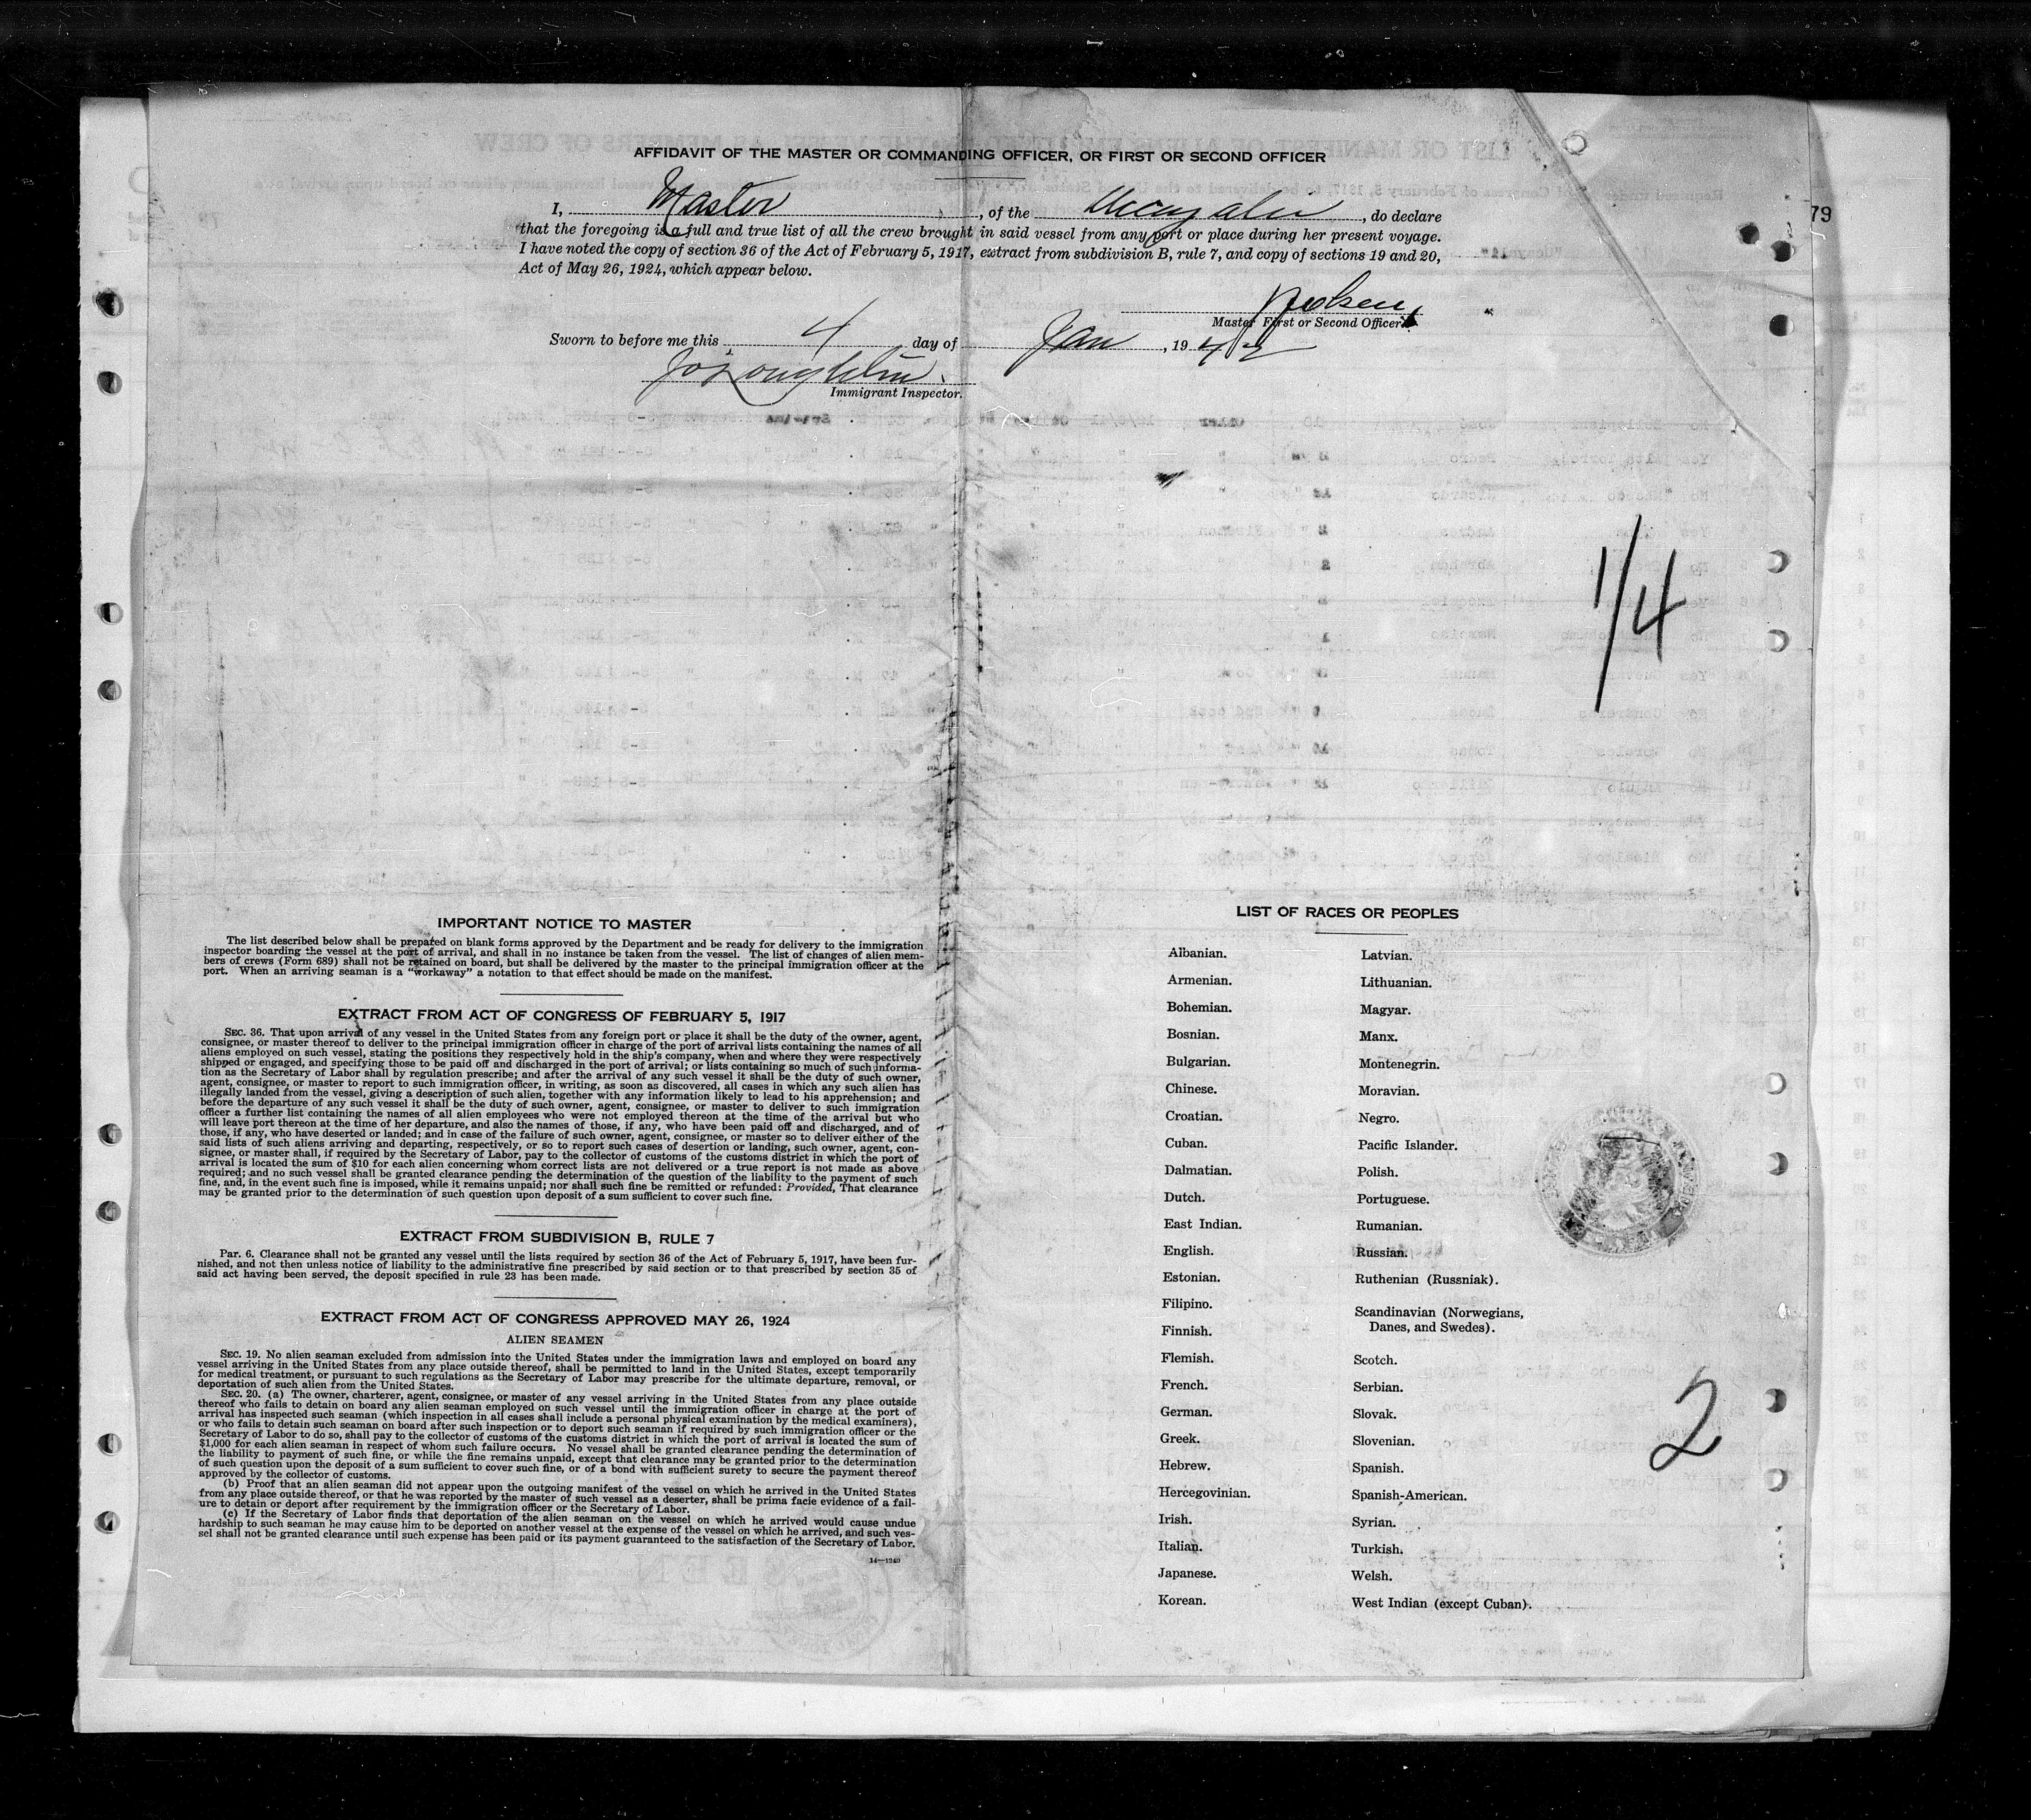 AFFIDAVIT OF THE MASTER OR COMMANDING OFFICER, OR FIRST OR SECOND OFFICER
I, Master, of the Ucayali, do declare
that the foregoing is a full and true list of all the crew brought in said vessel from any port or place during her present voyage.
I have noted the copy of section 36 of the Act of February 5, 1917, extract from subdivision B, rule 7, and copy of sections 19 and 20,
Act of May 26, 1924, which appear below.
79
Master First or Second Officer.
Sworn to before me this 4 day of Jan, 1942
Immigrant Inspector.
1/4
IMPORTANT NOTICE TO MASTER
The list described below shall be prepared on blank forms approved by the Department and be ready for delivery to the immigration
inspector boarding the vessel at the port of arrival, and shall in no instance be taken from the vessel. The list of changes of alien mem-
bers of crews (Form 689) shall not be retained on board, but shall be delivered by the master to the principal immigration officer at the
port. When an arriving seaman is a "workaway" a notation to that effect should be made on the manifest.
EXTRACT FROM ACT OF CONGRESS OF FEBRUARY 5, 1917
SEC. 36. That upon arrival of any vessel in the United States from any foreign port or place it shall be the duty of the owner, agent,
consignee, or master thereof to deliver to the principal immigration officer in charge of the port of arrival lists containing the names of all
aliens employed on such vessel, stating the positions they respectively hold in the ship's company, when and where they were respectively
shipped or engaged, and specifying those to be paid off and discharged in the port of arrival; or lists containing so much of such informa-
tion as the Secretary of Labor shall by regulation prescribe; and after the arrival of any such vessel it shall be the duty of such owner,
agent, consignee, or master to report to such immigration officer, in writing, as soon as discovered, all cases in which any such alien has
illegally landed from the vessel, giving a description of such alien, together with any information likely to lead to his apprehension; and
before the departure of any such vessel it shall be the duty of such owner, agent, consignee, or master to deliver to such immigration
officer a further list containing the names of all alien employees who were not employed thereon at the time of the arrival but who
will leave port thereon at the time of her departure, and also the names of those, if any, who have been paid off and discharged, and of
those, if any, who have deserted or landed; and in case of the failure of such owner, agent, consignee, or master so to deliver either of the
said lists of such aliens arriving and departing, respectively, or so to report such cases of desertion or landing, such owner, agent, con-
signee, or master shall, if required by the Secretary of Labor, pay to the collector of customs of the customs district in which the port of
arrival is located the sum of $10 for each alien concerning whom correct lists are not delivered or a true report is not made as above
required; and no such vessel shall be granted clearance pending the determination of the question of the liability to the payment of such
fine, and, in the event such fine is imposed, while it remains unpaid; nor shall such fine be remitted or refunded: Provided, That clearance
may be granted prior to the determination of such question upon deposit of a sum sufficient to cover such fine.
EXTRACT FROM SUBDIVISION B, RULE 7
Par. 6. Clearance shall not be granted any vessel until the lists required by section 36 of the Act of February 5, 1917, have been fur-
nished, and not then unless notice of liability to the administrative fine prescribed by said section or to that prescribed by section 35 of
said act having been served, the deposit specified in rule 23 has been made.
EXTRACT FROM ACT OF CONGRESS APPROVED MAY 26, 1924
ALIEN SEAMEN
SEC. 19. No alien seaman excluded from admission into the United States under the immigration laws and employed on board any
vessel arriving in the United States from any place outside thereof, shall be permitted to land in the United States, except temporarily
for medical treatment, or pursuant to such regulations as the Secretary of Labor may prescribe for the ultimate departure, removal, or
deportation of such alien from the United States.
SEC. 20. (a) The owner, charterer, agent, consignee, or master of any vessel arriving in the United States from any place outside
thereof who fails to detain on board any alien seaman employed on such vessel until the immigration officer in charge at the port of
arrival has inspected such seaman (which inspection in all cases shall include a personal physical examination by the medical examiners),
or who fails to detain such seaman on board after such inspection or to deport such seaman if required by such immigration officer or the
Secretary of Labor to do so, shall pay to the collector of customs of the customs district in which the port of arrival is located the sum of
$1,000 for each alien seaman in respect of whom such failure occurs. No vessel shall be granted clearance pending the determination of
the liability to payment of such fine, or while the fine remains unpaid, except that clearance may be granted prior to the determination
of such question upon the deposit of a sum sufficient to cover such fine, or of a bond with sufficient surety to secure the payment thereof
approved by the collector of customs.
(b) Proof that an alien seaman did not appear upon the outgoing manifest of the vessel on which he arrived in the United States
from any place outside thereof, or that he was reported by the master of such vessel as a deserter, shall be prima facie evidence of a fail-
ure to detain or deport after requirement by the immigration officer or the Secretary of Labor.
(c) If the Secretary of Labor finds that deportation of the alien seaman on the vessel on which he arrived would cause undue
hardship to such seaman he may cause him to be deported on another vessel at the expense of the vessel on which he arrived, and such ves-
sel shall not be granted clearance until such expense has been paid or its payment guaranteed to the satisfaction of the Secretary of Labor.
14—1240
LIST OF RACES OR PEOPLES
Albanian.
Armenian.
Bohemian.
Bosnian.
Bulgarian.
Chinese.
Croatian.
Cuban.
Dalmatian.
Dutch.
East Indian.
English.
Estonian.
Filipino.
Finnish.
Flemish.
French.
German.
Greek.
Hebrew.
Hercegovinian.
Irish.
Italian.
Japanese.
Korean.
Latvian.
Lithuanian.
Magyar.
Manx.
Montenegrin.
Moravian.
Negro.
Pacific Islander.
Polish.
Portuguese.
Rumanian.
Russian.
Ruthenian (Russniak).
Scandinavian (Norwegians,
Danes, and Swedes).
Scotch.
Serbian.
Slovak.
Slovenian.
Spanish.
Spanish-American.
Syrian.
Turkish.
Welsh.
West Indian (except Cuban).
2